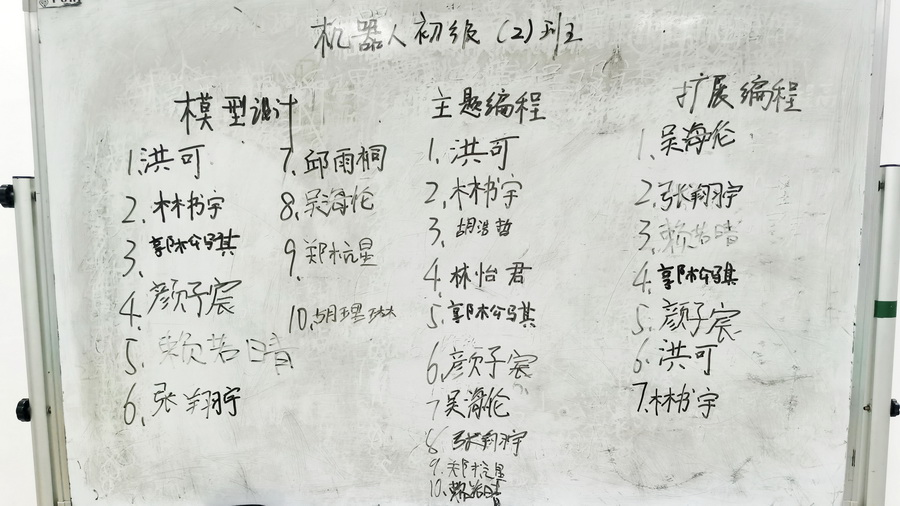 机器人初级(2)班
模型设计
1.洪可
2.林书宇
3.郭松骐
4.颜子宸
5.赖若晴
6.张翔宇
7.邱雨桐
8.吴海伦
9.郑杭星
10.胡理
主题编程
1.洪可
2.林书宇
3.胡浩哲
4.林怡君
5.郭松骐
6.颜子宸
7吴海伦
8张翔宇
9.郑杭星
10.赖若晴
扩展编程
1.吴海伦
2.张翔宇
3.赖若晴
4.郭松骐
5.颜子宸
6.洪可
7.林书宇